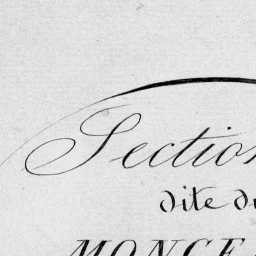 Section
dite du
MONCEA